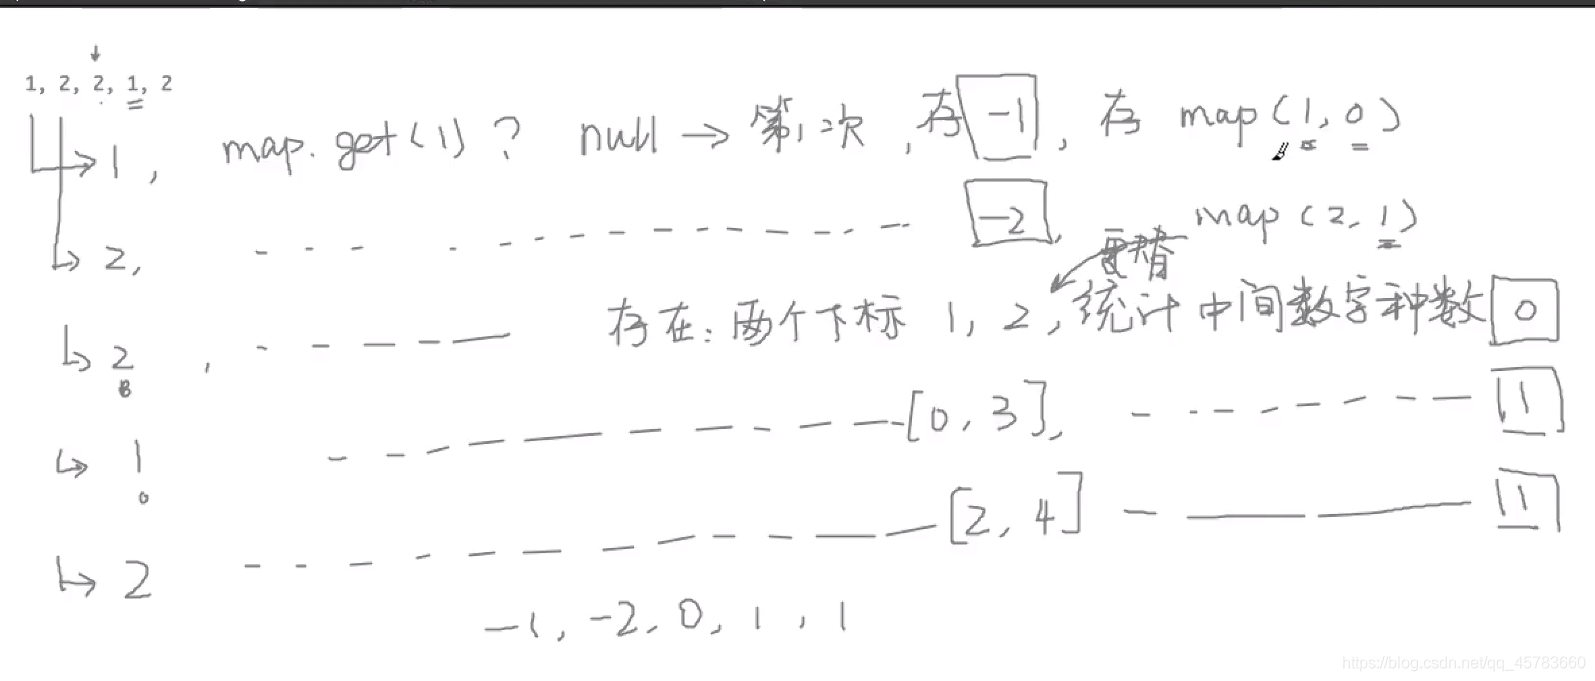 1, 2, 2, 1, 2
1, map.get(1)? null → 第1次, 存 -1, 存 map(1, 0)
2, -2, map(2, 1)
更替
2, 存在: 两个下标 1, 2, 统计中间数字种数 0
1 [0, 3], 1
0
2 [2, 4] 1
-1, -2, 0, 1, 1
https://blog.csdn.net/qq_45783660